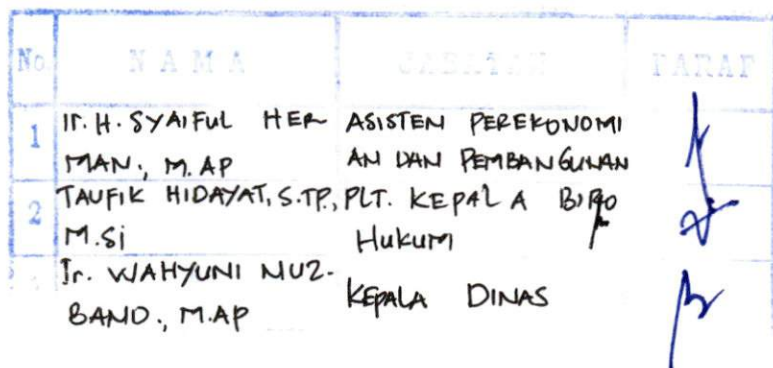 No. NAMA JABATAN PARAF
1 Ir. H. SYAIFUL HER ASISTEN PEREKONOMI
MAN., M.AP AN DAN PEMBANGUNAN
2 TAUFIK HIDAYAT, S.TP., PLT. KEPALA BIRO
M.Si HUKUM
Ir. WAHYUNI NUZ-
BAND., M.AP KEPALA DINAS